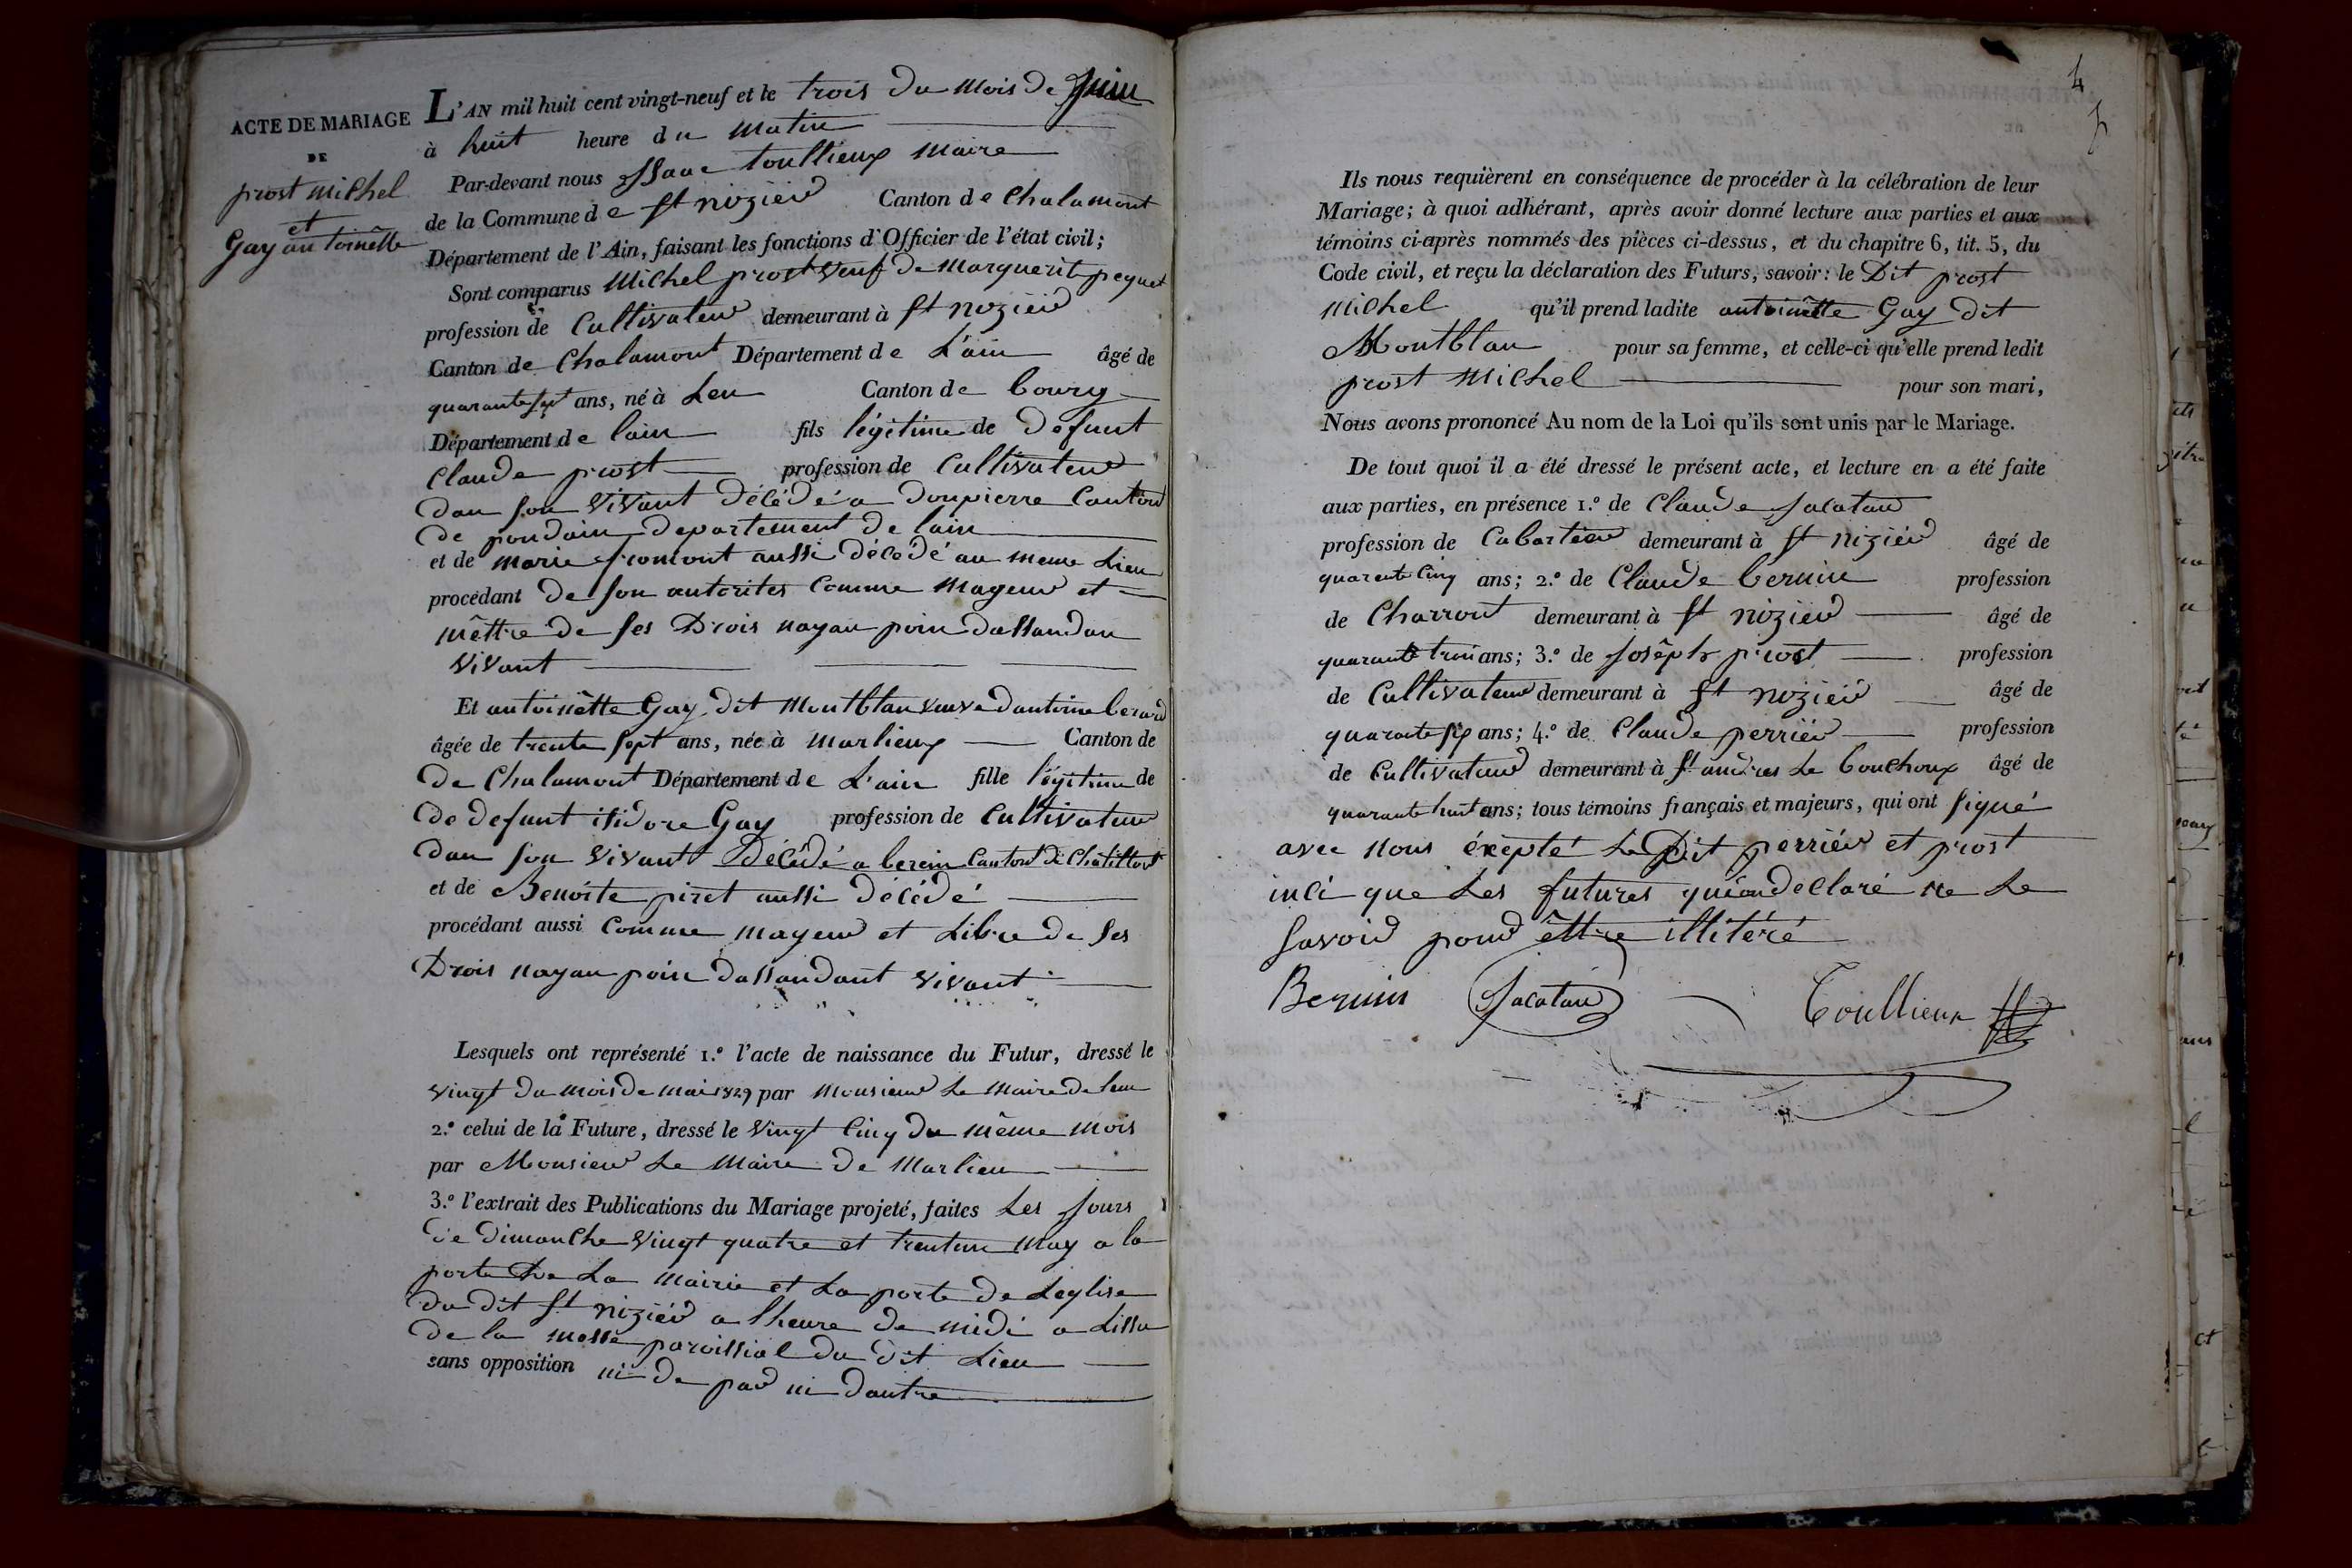 ACTE DE MARIAGE
DE
prost michel
et
Gay antoinêtte
L'AN mil huit cent vingt-neuf et le trois du mois de Juin
à huit heure du matin
Par-devant nous Isaac Toullieux maire
de la Commune de St nizier Canton de Chalamont
Département de l'Ain, faisant les fonctions d'Officier de l'état civil;
Sont comparus Michel prost veuf de Marguerit pequet
profession de Cultivateur demeurant à St nizier
Canton de Chalamont Département de L'ain âgé de
quarante sept ans, né à Len Canton de bourg
Département de lain fils légitime de defunt
Claude prost profession de Cultivateur
dan son vivant décédé a donpierre Canton
de pondain departement de lain
et de marie fromont aussi décédé au meme Lieu
procédant de son autorites comme mageur et
mêttre de ses Drois nayan poin dassandan
vivant
Et antoinêtte Gay dit Montblan veuve dantoine berard
âgée de trente sept ans, née à marlieux Canton de
de Chalamont Département de L'ain fille légitime de
de defunt isidore Gay profession de Cultivateur
dan son vivant décédé a berein Canton de Châtillont
et de Benoite piret aussi décédé
procédant aussi comme mageur et Libre de ses
Drois nayan poin dassandant vivant
Lesquels ont représenté 1.º l'acte de naissance du Futur, dressé le
vingt du mois de mai 1829 par monsieur Le maire de Len
2.º celui de la Future, dressé le vingt cinq du même mois
par Monsieur Le maire de marlieu
3.º l'extrait des Publications du Mariage projeté, faites Les Jours
de dimanche vingt quatre et trentun may a la
porte de La mairie et La porte de Leglise
du dit St nizier a lheure de midi a Lissu
de la messe paroissial du dit Lieu
sans opposition ni de par ni dautre
4
Ils nous requièrent en conséquence de procéder à la célébration de leur
Mariage; à quoi adhérant, après avoir donné lecture aux parties et aux
témoins ci-après nommés des pièces ci-dessus, et du chapitre 6, tit. 5, du
Code civil, et reçu la déclaration des Futurs, savoir: le Dit prost
michel qu'il prend ladite antoinêtte Gay dit
Montblan pour sa femme, et celle-ci qu'elle prend ledit
prost michel pour son mari,
Nous avons prononcé Au nom de la Loi qu'ils sont unis par le Mariage.
De tout quoi il a été dressé le présent acte, et lecture en a été faite
aux parties, en présence 1.º de Claude Jacatau
profession de Cabartier demeurant à St nizier âgé de
quarente cinq ans; 2.º de Claude bernin profession
de Charront demeurant à St nizier âgé de
quarante trois ans; 3.º de Josêph prost profession
de Cultivateur demeurant à St nizier âgé de
quarante six ans; 4.º de Claude perrier profession
de Cultivateur demeurant à St andres Le bouchoux âgé de
quarante huit ans; tous témoins français et majeurs, qui ont signé
avec nous éxepté Le Dit perrier et prost
inci que Les futures qui on declaré ne Le
savoir pour êttre illitéré
Bernin Jacatau Toullieux